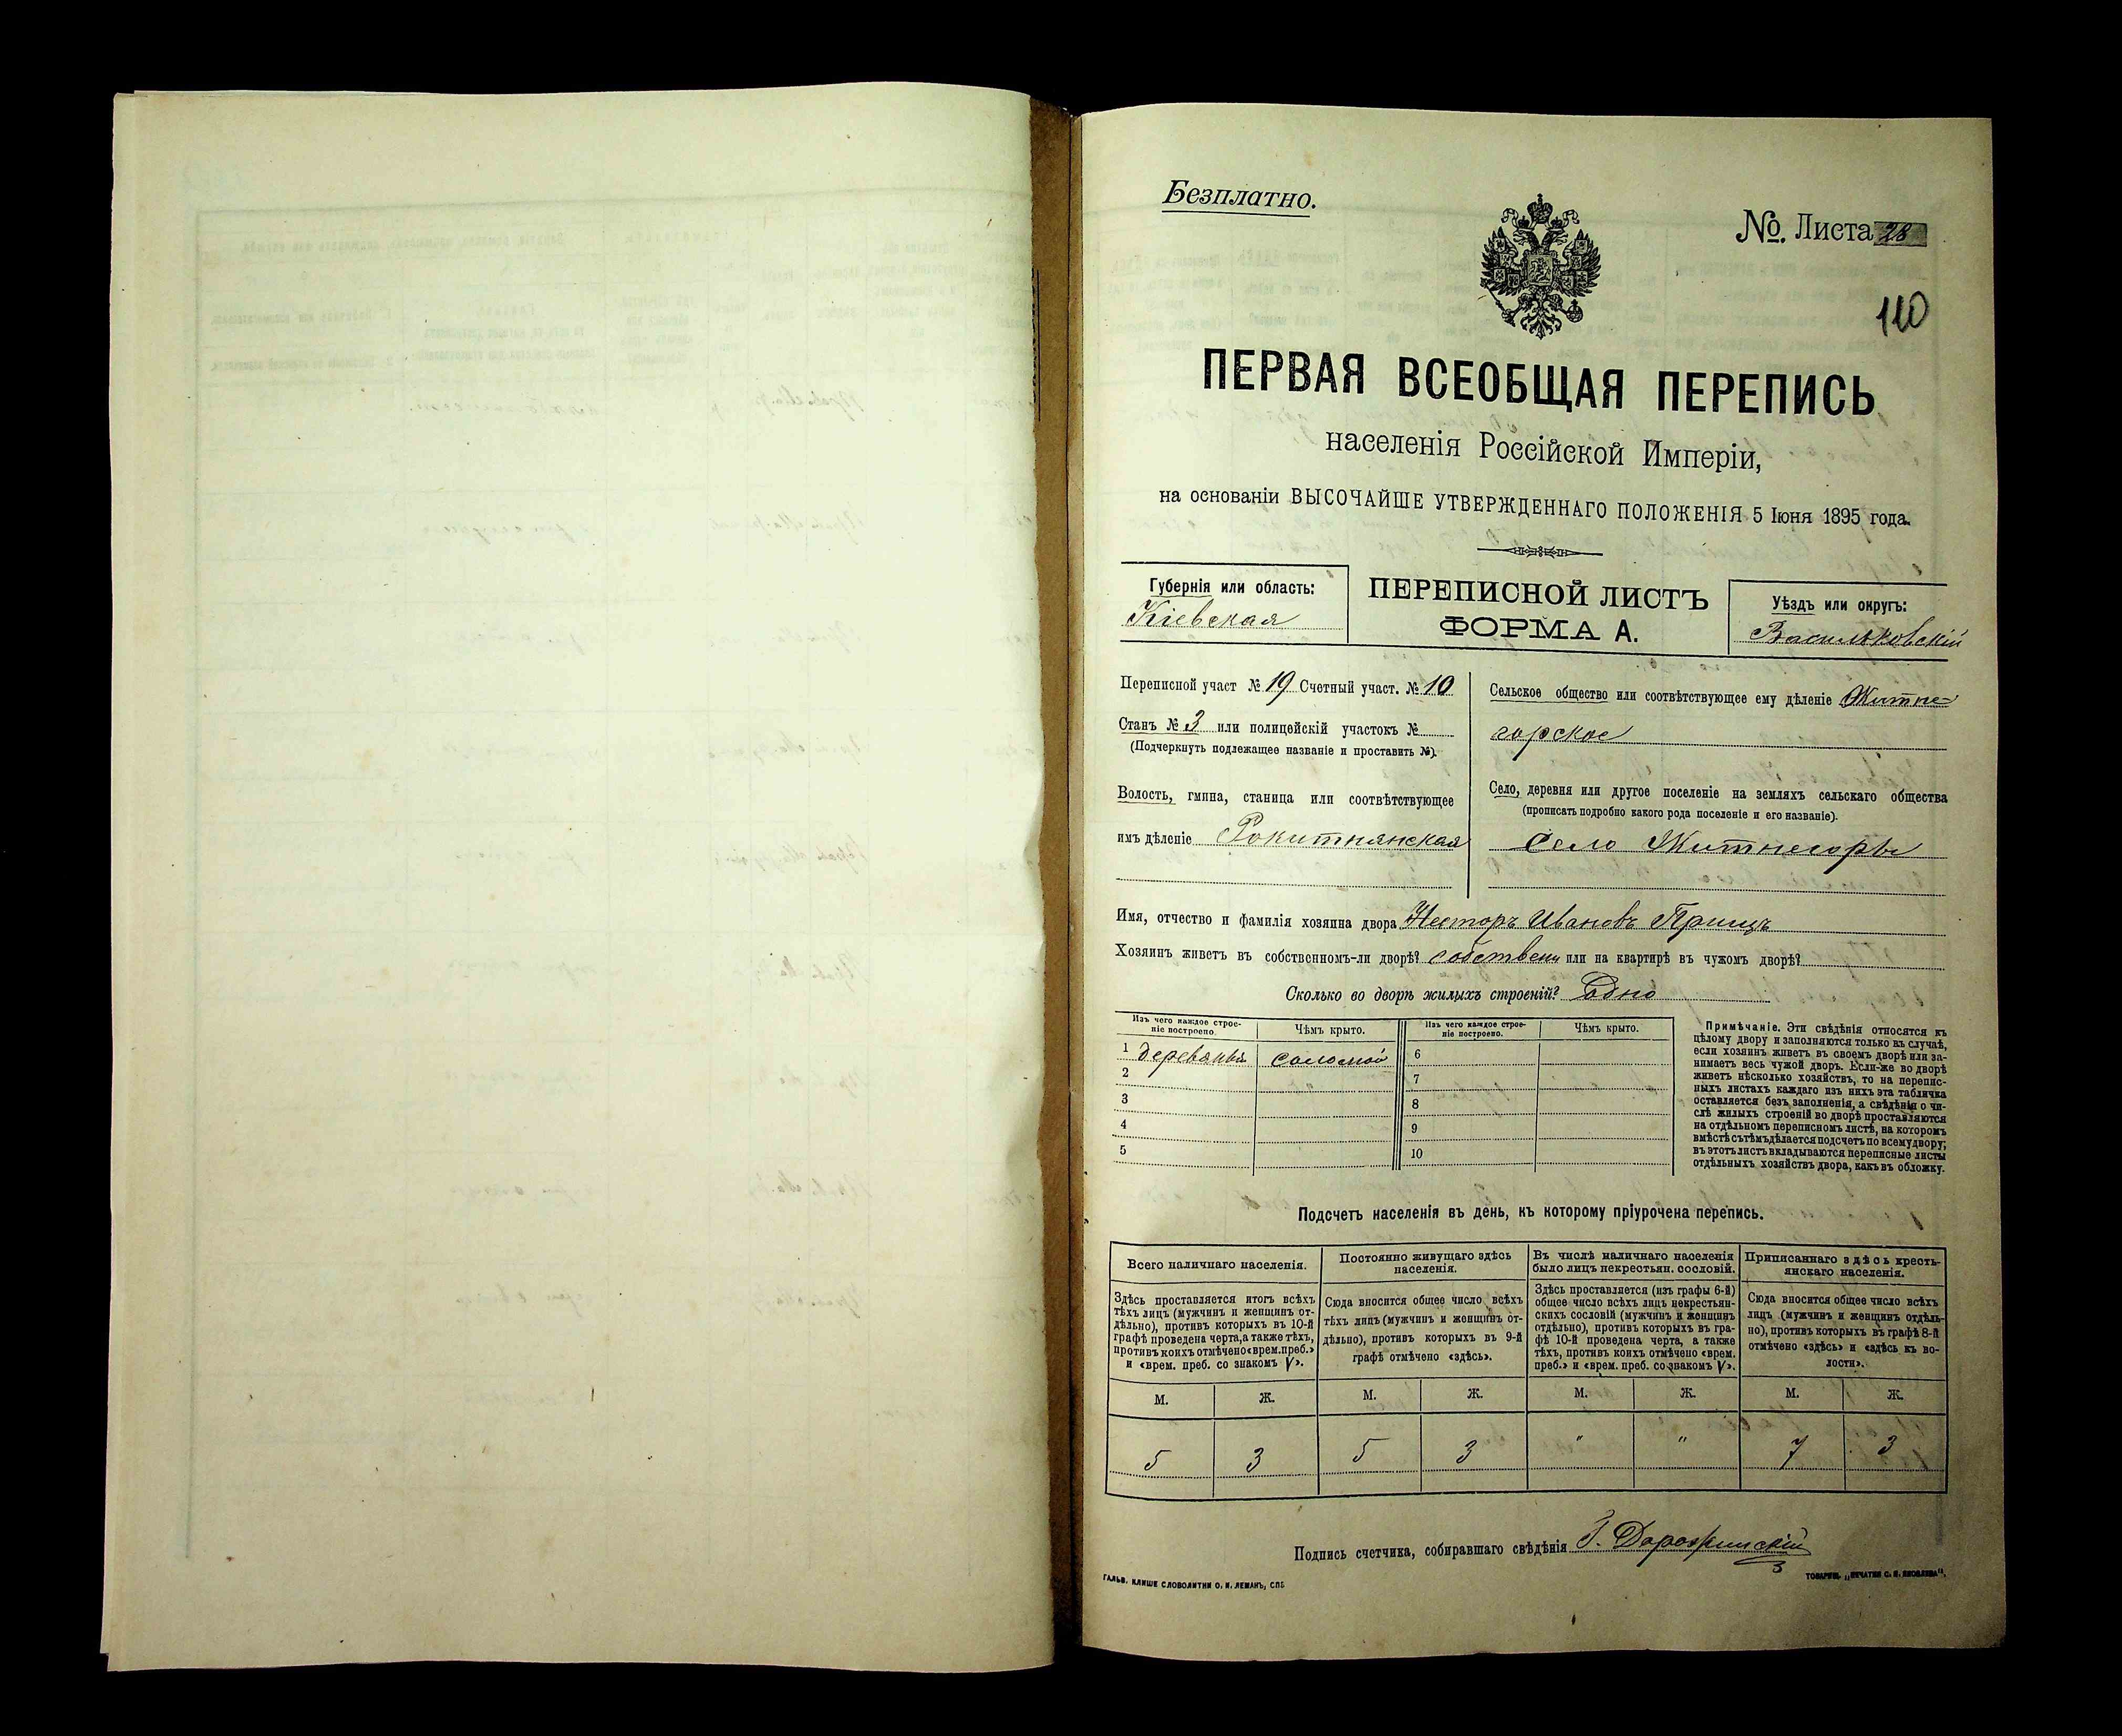 Безплатно.
№ Листа 28
110
ПЕРВАЯ ВСЕОБЩАЯ ПЕРЕПИСЬ
населенія Россійской Имперіи,
на основаніи ВЫСОЧАЙШЕ УТВЕРЖДЕННАГО ПОЛОЖЕНІЯ 5 Іюня 1895 года.
Губернія или область:
Кіевская
ПЕРЕПИСНОЙ ЛИСТЪ
ФОРМА А.
Уѣздъ или округъ:
Васильковскій
Переписной участ № 19 Счетный участ. № 10
Станъ № 3 или полицейскій участокъ №
(Подчеркнуть подлежащее названіе и проставить №).
Волость, гмина, станица или соотвѣтствующее
имъ дѣленіе Рокитнянская
Сельское общество или соотвѣтствующее ему дѣленіе Житне-
горское
Село, деревня или другое поселеніе на земляхъ сельскаго общества
(прописать подробно какого рода поселеніе и его названіе).
Село Житнегоры
Имя, отчество и фамилія хозяина двора Несторъ Ивановъ Прищъ
Хозяинъ живетъ въ собственномъ-ли дворѣ? собствени или на квартирѣ въ чужомъ дворѣ?
Сколько во дворѣ жилыхъ строеній? Одно
Изъ чего каждое строе-
ніе построено.
Чѣмъ крыто.
Изъ чего каждое строе-
ніе построено.
Чѣмъ крыто.
1 деревяныя соломой 6
2 7
3 8
4 9
5 10
Примѣчаніе. Эти свѣдѣнія относятся къ
цѣлому двору и заполняются только въ случаѣ,
если хозяинъ живетъ въ своемъ дворѣ или за-
нимаетъ весь чужой дворъ. Если-же во дворѣ
живетъ нѣсколько хозяйствъ, то на перепис-
ныхъ листахъ каждаго изъ нихъ эта табличка
оставляется безъ заполненія, а свѣдѣнія о чи-
слѣ жилыхъ строеній во дворѣ проставляются
на отдѣльномъ переписномъ листѣ, на которомъ
вмѣстѣ съ тѣмъ дѣлается подсчетъ по всему двору;
въ этотъ листъ вкладываются переписные листы
отдѣльныхъ хозяйствъ двора, какъ въ обложку.
Подсчетъ населенія въ день, къ которому пріурочена перепись.
Всего наличнаго населенія.
Здѣсь проставляется итогъ всѣхъ
тѣхъ лицъ (мужчинъ и женщинъ от-
дѣльно), противъ которыхъ въ 10-й
графѣ проведена черта, а также тѣхъ,
противъ коихъ отмѣчено «врем. преб.»
и «врем. преб. со знакомъ V».
Постоянно живущаго здѣсь
населенія.
Сюда вносится общее число всѣхъ
тѣхъ лицъ (мужчинъ и женщинъ от-
дѣльно), противъ которыхъ въ 9-й
графѣ отмѣчено «здѣсь».
Въ числѣ наличнаго населенія
было лицъ некрестьян. сословій.
Здѣсь проставляется (изъ графы 6-й)
общее число всѣхъ лицъ некрестьян-
скихъ сословій (мужчинъ и женщинъ
отдѣльно), противъ которыхъ въ гра-
фѣ 10-й проведена черта, а также
тѣхъ, противъ коихъ отмѣчено «врем.
преб.» и «врем. преб. со знакомъ V».
Приписаннаго здѣсь кресть-
янскаго населенія.
Сюда вносится общее число всѣхъ
лицъ (мужчинъ и женщинъ отдѣль-
но), противъ которыхъ въ графѣ 8-й
отмѣчено «здѣсь» и «здѣсь въ во-
лости».
М. Ж. М. Ж. М. Ж. М. Ж.
5 3 5 3 " " 7 3
Подпись счетчика, собиравшаго свѣдѣнія З. Дорожинскій
ГАЛЬВ. КЛИШЕ СЛОВОЛИТНИ О. И. ЛЕМАНЪ, СПБ
ТОВАРИЩ. „ПЕЧАТНЯ С. П. ЯКОВЛЕВА".